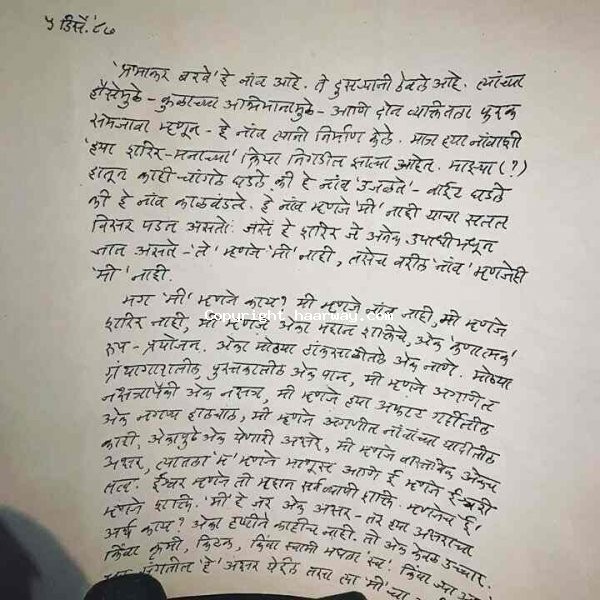 ५ डिसें. '८७
'प्रभाकर बरवे' हे नांव आहे. ते दुसऱ्यांनी ठेवले आहे. त्यांच्या
हौसेमुळे - कुळाच्या अभिमानामुळे - आणि दोन व्यक्तितला फरक
समजावा म्हणून - हे नांव त्यांनी निर्माण केले. मात्र ह्या नांवाशी
'ह्या शरिर-मनाच्या' क्रिया निगडीत झाल्या आहेत. माझ्या (?)
हातून काही चांगले घडले की हे नांव 'उजळते' - वाईट घडले
की हे नांव काळवंडते. हे नांव म्हणजे 'मी' नाही याचा सतत
विसर पडत असतो. जसें हे शरिर जे अनेक उपाधीमधून
जात असते - 'ते' म्हणजे 'मी' नाही, तसेच वरील 'नांव' म्हणजेही
'मी' नाही.
मग 'मी' म्हणजे काय? मी म्हणजे नांव नाही, मी म्हणजे
शरिर नाही, मी म्हणजे एका महान शक्तिचे, एक 'ऋणात्मक'
रूप - प्रयोजन. एका मोठ्या टांकसाळीतले एक नाणे. मोठ्या
ग्रंथागारातील पुस्तकातील एक पान, मी म्हणजे अगणित
नक्षत्रांपैकी एक नक्षत्र, मी म्हणजे ह्या अफाट गर्दीतील
एक नगण्य हालचाल, मी म्हणजे अगणीत नांवांच्या यादीतील
काही. एकापुढे एक येणारी अक्षर, मी म्हणजे वास्तविक एकच
अक्षर, त्यातला 'म' म्हणजे माणूस आणि ई म्हणजे ईश्वरी
तत्व. ईश्वर म्हणजे तो महान सर्वव्यापी शक्ति. म्हणजेच 'ई'
म्हणजे शक्ति. 'मी' हे जर एक अक्षर - तर ह्या अक्षराचा
अर्थ काय? एका दृष्टीने काहीच नाही. तो एक केवळ उच्चार.
किंवा कृमी, किटक, किंवा स्वामी मधला 'स्व'. किंवा ज्या
संगतीत 'हे' अक्षर येईल तसा त्या 'मी'चा